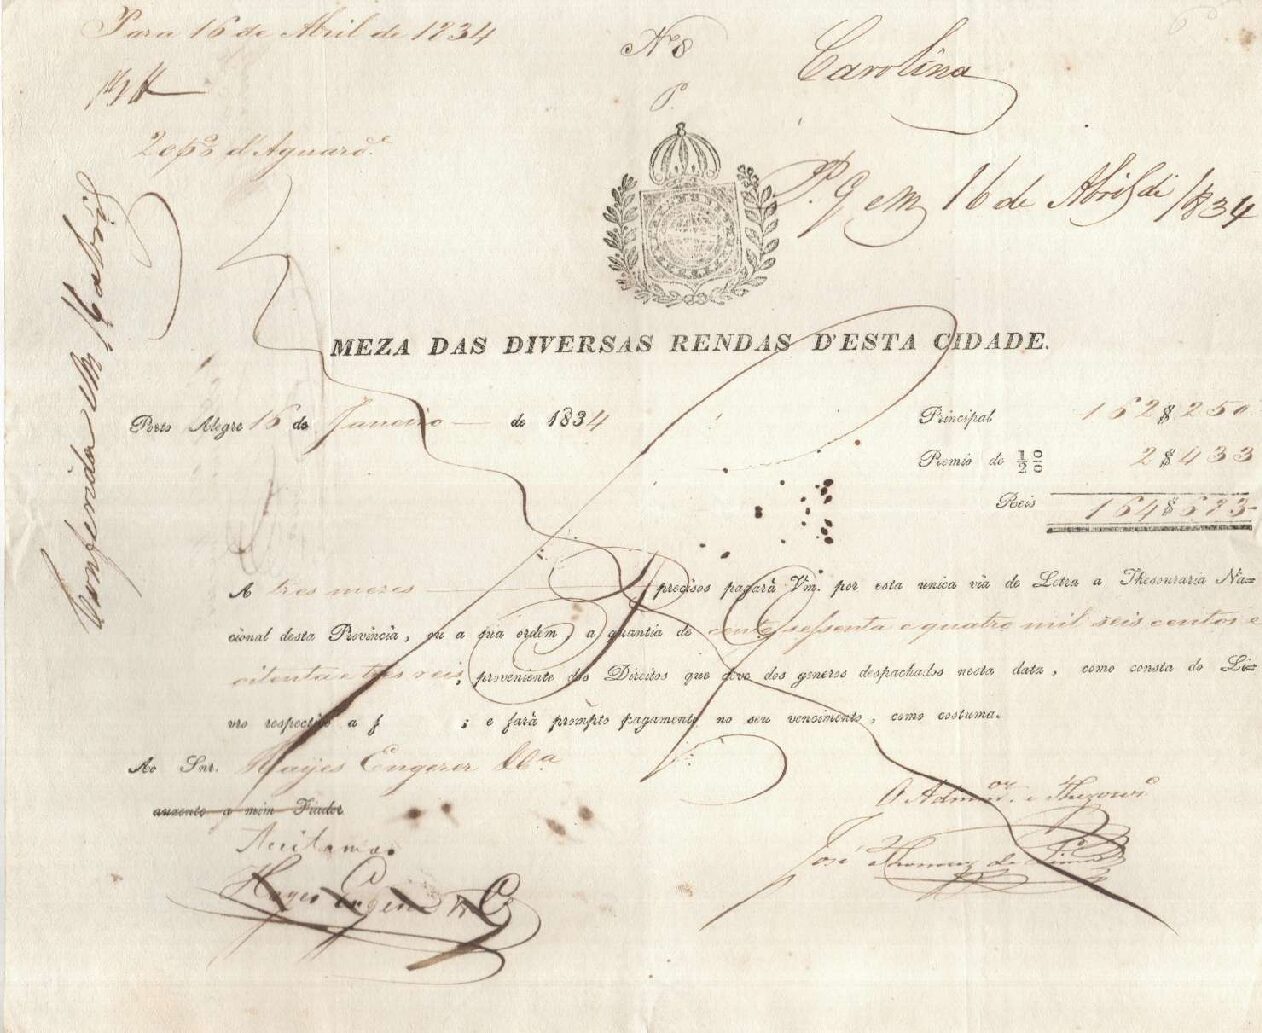 Para 16 de Abril de 1834
Nº 8
Carolina
P.
2 cpºs d'Aguardº
P. g em 16 de Abril de 1834
Conferida em 16 abril
MEZA DAS DIVERSAS RENDAS D'ESTA CIDADE.
Porto Alegre 16 de Janeiro de 1834
Principal 162$250
Premio de 1/2 % 2$433
Reis 164$683
A tres mezes precisos pagará Vm. por esta unica via de Letra a Thesouraria Na=
cional desta Provincia, ou a sua ordem, a quantia de cento sessenta e quatro mil seis centos e
oitenta e tres reis, proveniente dos Direitos que deve dos generos despachados nesta data, como consta do Li=
vro respectivo a f ; e fará prompto pagamento no seu vencimento, como costuma.
Ao Snr. Hayes Engerer & Cª
auzente a mim Fiador
Aceitamos
O Admor. e Thezourº
Hayes Engerer & C
José Thomaz de Lima